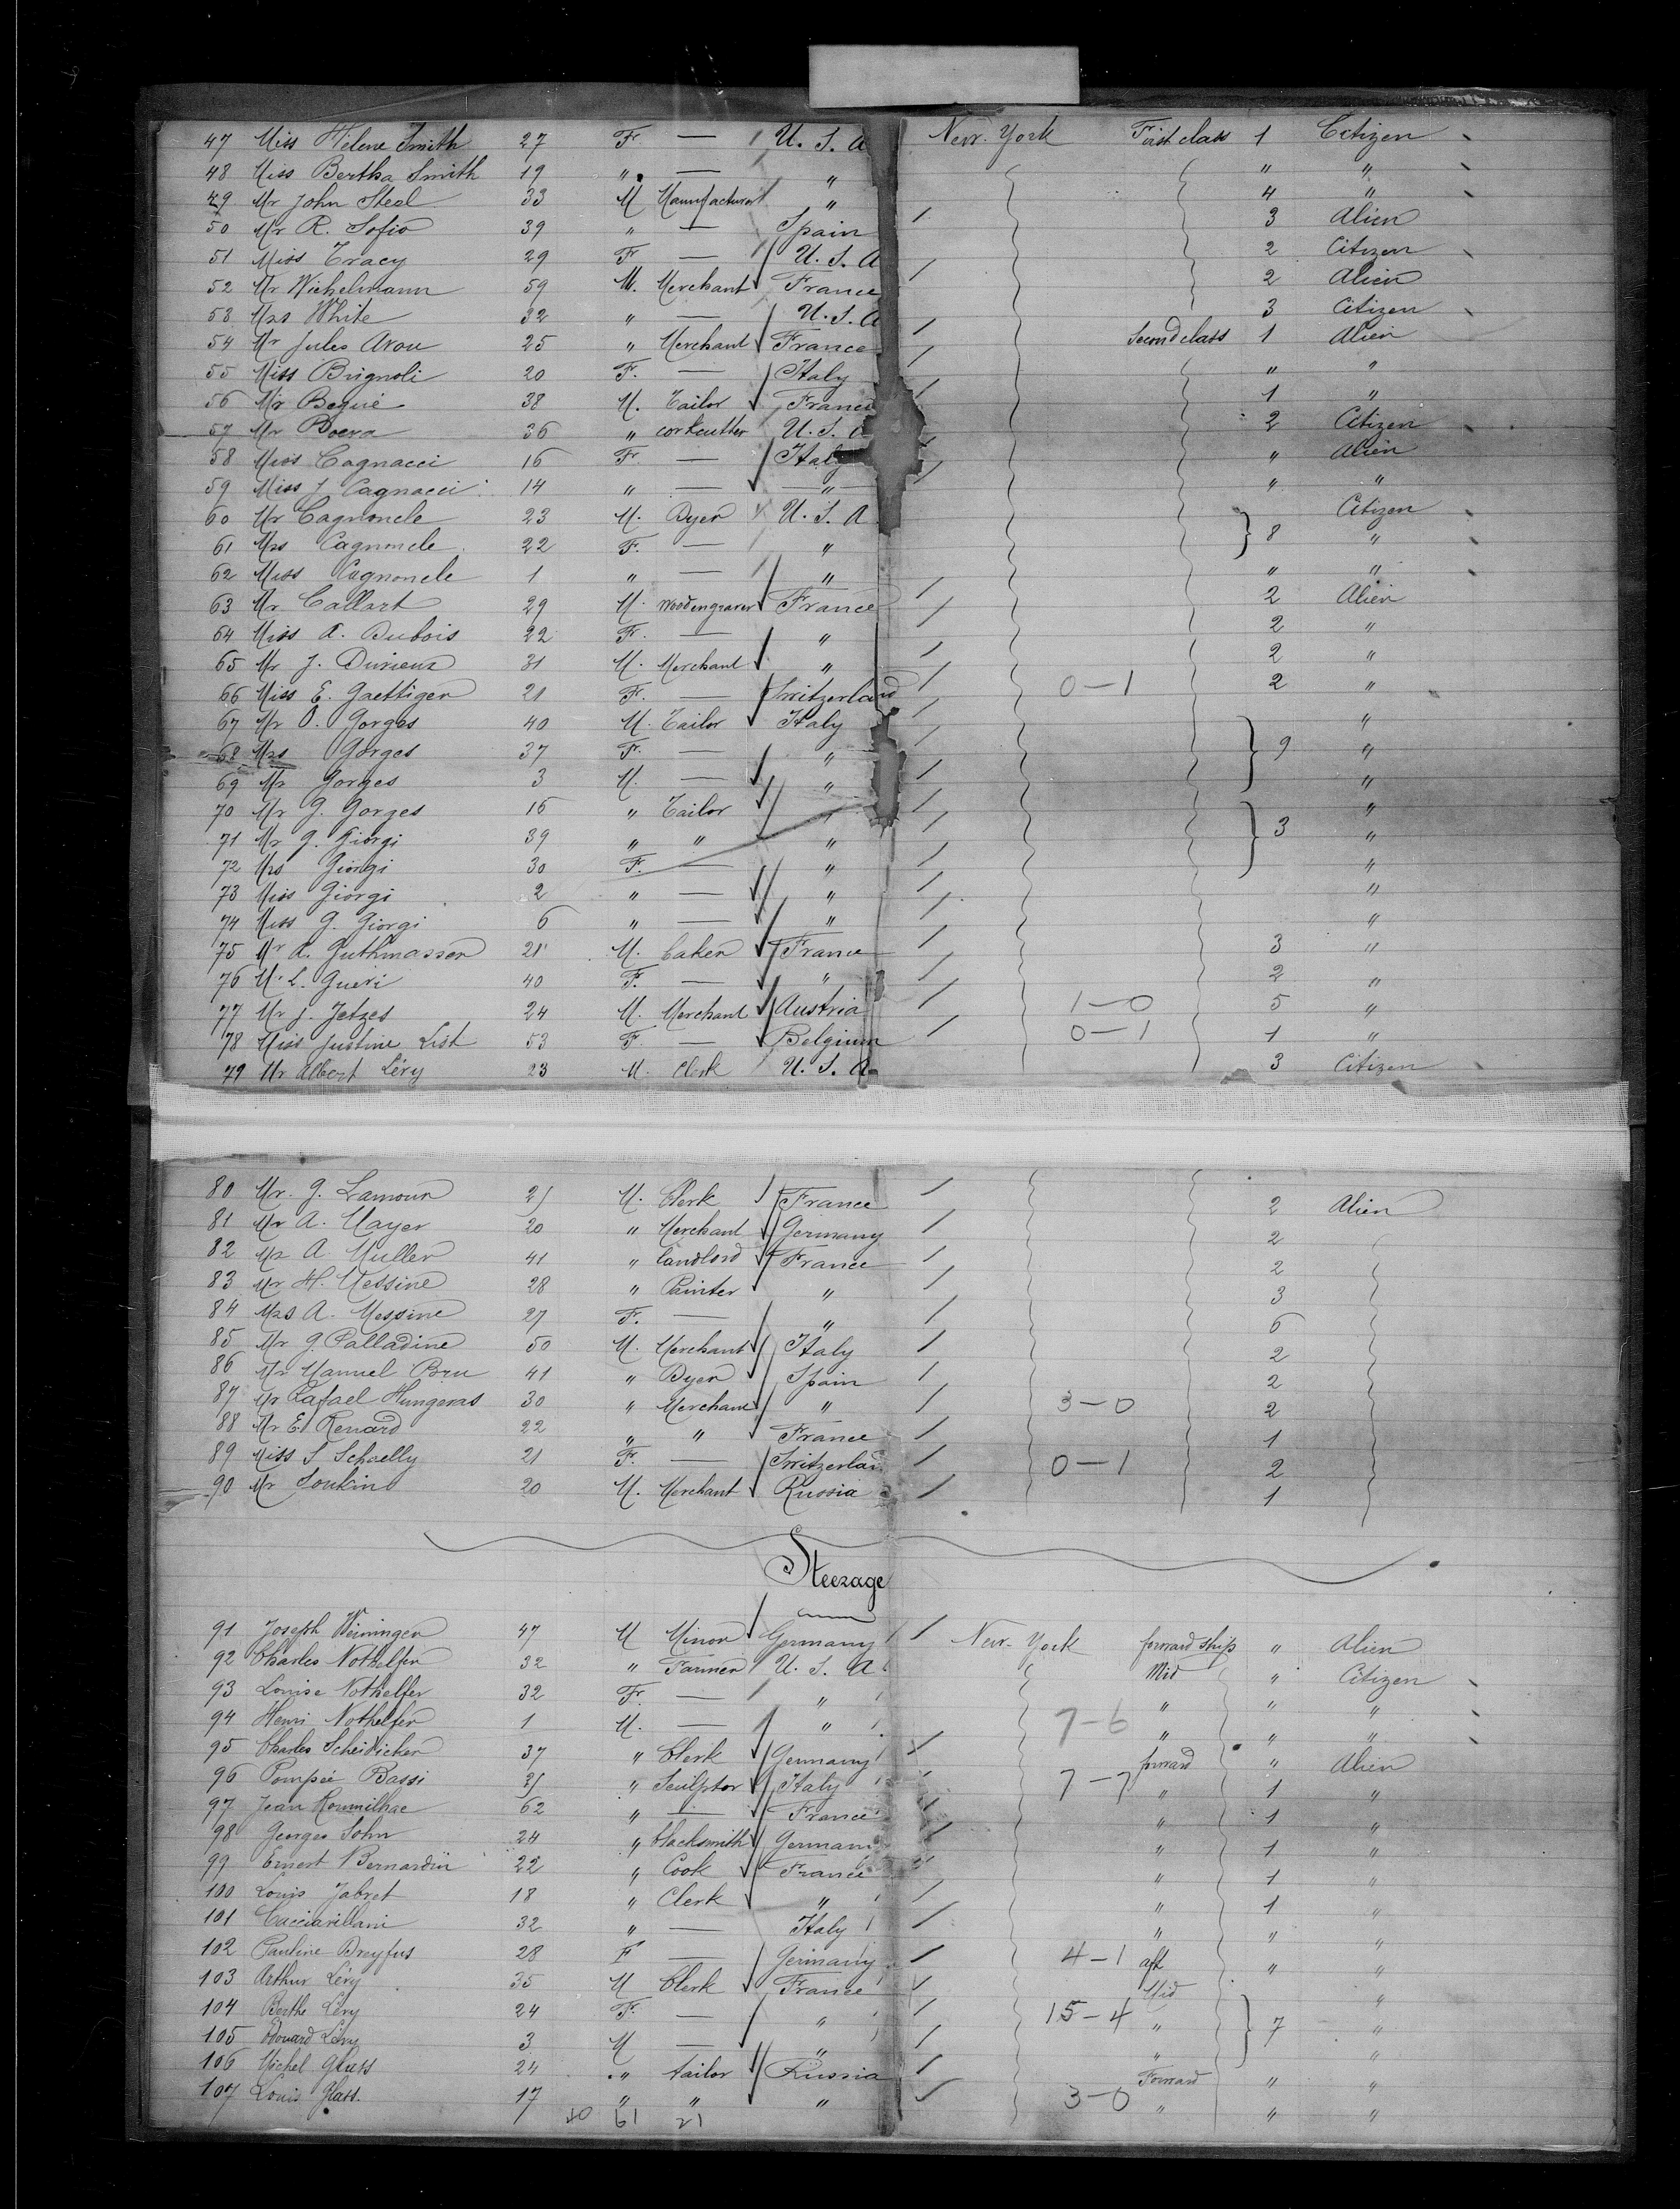 47 Miss Helene Smith 27 F. — U. S. A New-York First class 1 Citizen
48 Miss Bertha Smith 19 " — " " "
49 Mr John Steel 33 M Manufacturer " 4 "
50 Mr R. Sofio 39 " — Spain 3 Alien
51 Miss Tracy 29 F — U. S. A 2 Citizen
52 Mr Wichelmann 59 M. Merchant France 2 Alien
53 Mrs White 32 " — U. S. A 3 Citizen
54 Mr Jules Arou 25 " Merchant France Second class 1 Alien
55 Miss Brignoli 20 F. — Italy " "
56 Mr Bequié 38 M. Tailor France 1 "
57 Mr Boera 36 " corkcutter U. S. A 2 Citizen
58 Miss Cagnacci 16 F. — Italy " Alien
59 Miss J. Cagnacci 14 " — " " "
60 Mr Cagnoncle 23 M. Dyer U. S. A Citizen
61 Mrs Cagnoncle 22 F. — " 8 "
62 Miss Cagnoncle 1 " — " " "
63 Mr Callart 29 M. Woodengraver France 2 Alien
64 Miss A. Dubois 22 F. — " 2 "
65 Mr J. Durieux 31 M. Merchant " 2 "
66 Miss E. Gaettiger 21 F. — Switzerland 0—1 2 "
67 Mr O. Gorges 40 M. Tailor Italy "
68 Mrs Gorges 37 F. — " 9 "
69 Mr Gorges 3 M. — " "
70 Mr G. Gorges 16 " Tailor " "
71 Mr G. Giorgi 39 " " " 3 "
72 Mrs Giorgi 30 F. — " "
73 Miss Giorgi 2 " — " "
74 Miss G. Giorgi 6 " — " "
75 Mr A. Guthmasson 21 M. baker France 3 "
76 M. L. Gueri 40 F. — " 2 "
77 Mr J. Jetzes 24 M. Merchant Austria 1—0 5 "
78 Miss Justine List 53 F. — Belgium 0—1 1 "
79 Mr Albert Lévy 23 M. Clerk U. S. A. 3 Citizen
80 Mr. G. Lamour M. Clerk France 2 Alien
81 Mr A. Mayer 20 " Merchant Germany 2
82 Mr A Muller 41 " landlord France 2
83 Mr H. Messine 28 " Painter " 3
84 Mrs A. Messine 27 F. — " 6
85 Mr G. Palladine 50 M. Merchant Italy 2
86 Mr Manuel Bru 41 " Dyer Spain 2
87 Mr Rafael Hungeras 30 " Merchant " 3—0 2
88 Mr E. Renard 22 " " France 1
89 Miss S Schaelly 21 F. — Switzerland 0—1 2
90 Mr Soukino 20 M. Merchant Russia 1
Steerage
91 Joseph Weininger 47 M Minor Germany New-York forward ship " Alien
92 Charles Nothelfer 32 " Farmer U. S. A Mid " Citizen
93 Louise Nothelfer 32 F. — " " " "
94 Henri Nothelfer 1 M. — " 7—6 " " "
95 Charles Scheidicker 37 " Clerk Germany forward " Alien
96 Pompée Bassi " Sculptor Italy 7—7 " 1 "
97 Jean Roumilhac 62 " — France " 1 "
98 Georges Sohn 24 " blacksmith Germany " 1 "
99 Ernest Bernardin 22 " Cook France " 1 "
100 Louis Jabret 18 " Clerk " " 1 "
101 Cacciavillani 32 " — Italy " " "
102 Pauline Dreyfus 28 F — Germany 4—1 aft " "
103 Arthur Lévy 35 M Clerk France Mid "
104 Berthe Lévy 24 F. — " 15—4 " 7 "
105 Edouard Lévy 3 M — " " "
106 Michel Glass 24 " tailor Russia Forward " "
107 Louis Glass. 17 " " " 3—0 " " "
61 21